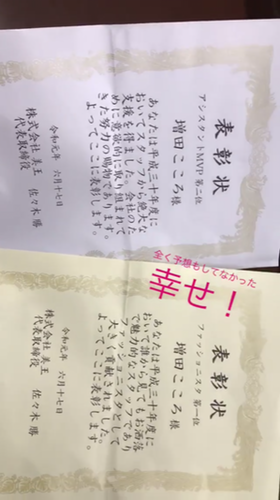 表彰状
アシスタントMVP 第二位
増田こころ様
あなたは平成三十年度に
おいてスタッフから絶大な
支援を得ました。会社のた
めに意欲的に取り組まれて
きた努力の賜物であります。
よってここに表彰します。
令和元年 六月十七日
株式会社 美王
代表取締役 佐々木 勝
全く予想もしてなかった
幸せ!
表彰状
ファッショニスタ 第一位
増田こころ様
あなたは平成三十年度に
おいて誰から見てもお洒落
で魅力的なスタッフであり
ファッショニスタとして
大きく貢献されました。
よってここに表彰します。
令和元年 六月十七日
株式会社 美王
代表取締役 佐々木 勝